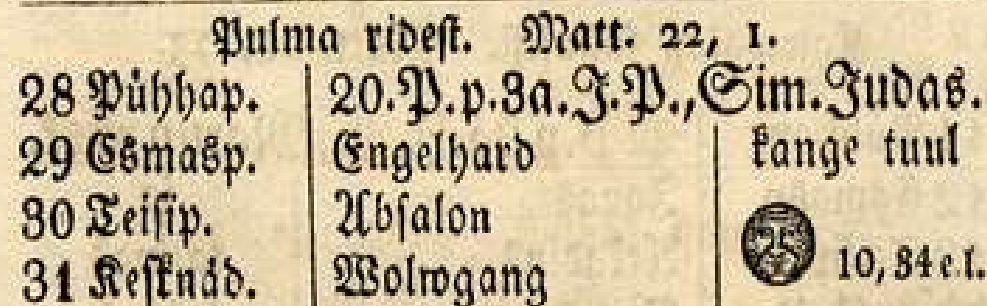 Pulma ridest. Matt. 22, 1.
28 Pühhap. 20. P. p. 3a. J. P., Sim. Judas.
29 Esmasp. Engelhard kange tuul
30 Teisip. Absalon
31 Kesknäd. Wolwgang 10, 34 e. l.